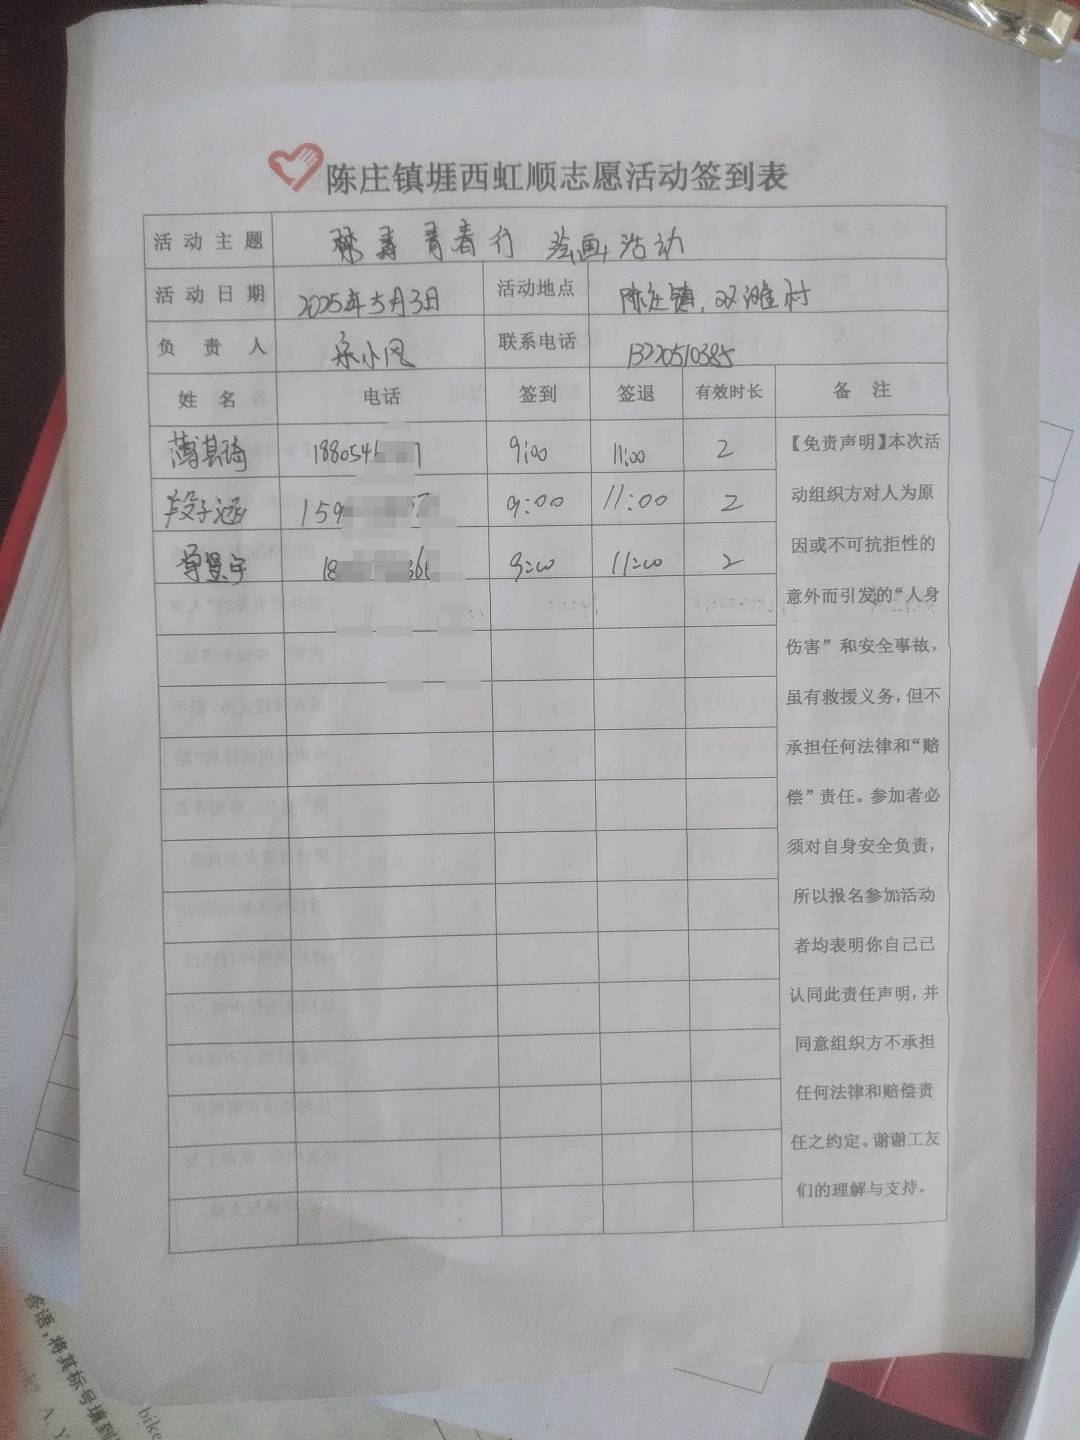 陈庄镇堐西虹顺志愿活动签到表
活动主题 禁毒青春行 绘画活动
活动日期 2025年5月3日 活动地点 陈庄镇,双滩村
负责人 小凤 联系电话 13220510385
姓名 电话 签到 签退 有效时长 备注
薄其琦 1880546 7 9:00 11:00 2
段子涵 159 9:00 11:00 2
18 366 9:00 11:00 2
【免责声明】本次活
动组织方对人为原
因或不可抗拒性的
意外而引发的“人身
伤害”和安全事故，
虽有救援义务，但不
承担任何法律和“赔
偿”责任。参加者必
须对自身安全负责，
所以报名参加活动
者均表明你自己已
认同此责任声明，并
同意组织方不承担
任何法律和赔偿责
任之约定。谢谢工友
们的理解与支持。
答语，将其标号填到
bike
A. Y